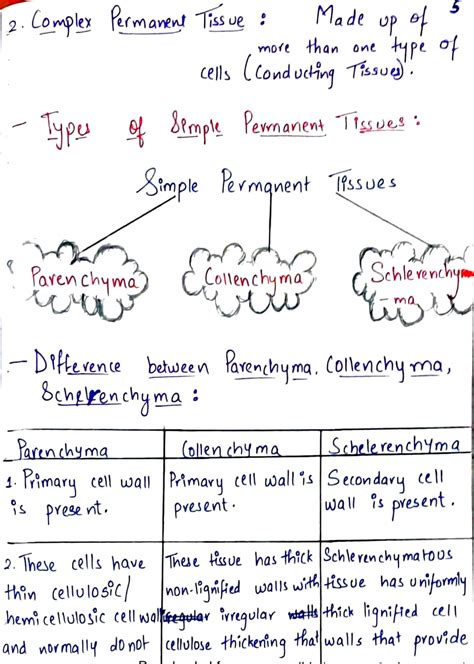 5
2. Complex Permanent Tissue : Made up of
more than one type of
cells (Conducting Tissues).
- Types of Simple Permanent Tissues :
Simple Permanent Tissues
Parenchyma
Collenchyma
Schlerenchy
-ma
- Difference between Parenchyma, Collenchyma,
Schelrenchyma :
Parenchyma
Collenchyma
Schelerenchyma
1. Primary cell wall
is present.
Primary cell wall is
present.
Secondary cell
wall is present.
2. These cells have
thin cellulosic/
hemicellulosic cell wall
and normally do not
These tissue has thick
non-lignified walls with
irregular
cellulose thickening that
Schlerenchymatous
tissue has uniformly
thick lignified cell
walls that provide